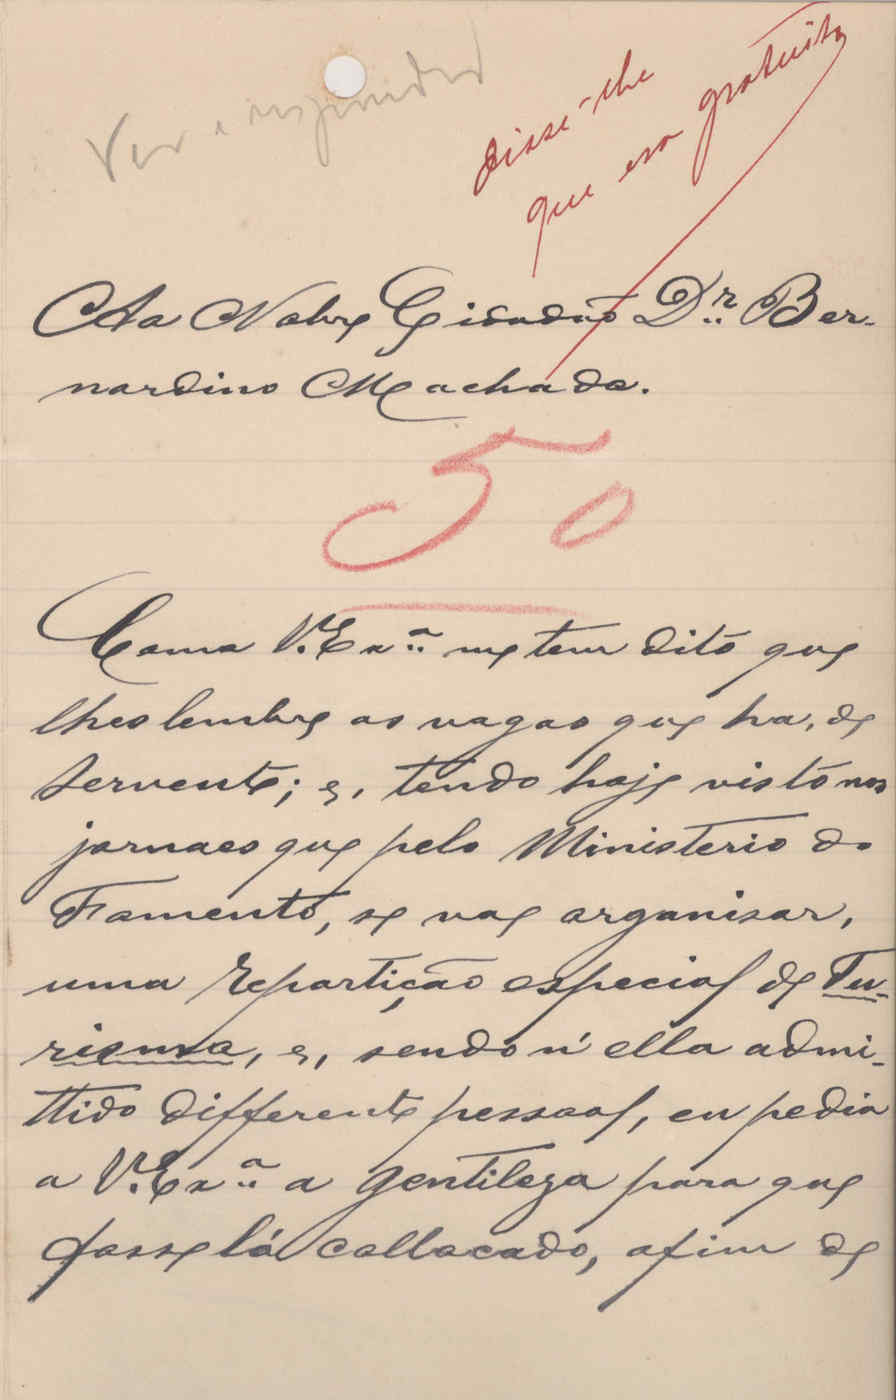 Ver e responder
Disse-lhe
que era gratuito
Ao Nobre Cidadão Dr. Ber-
nardino Machado.
50
Como V. Exª. me tem dito que
lhes lembre as vagas que ha, de
servente; e, tendo hoje visto nos
jornaes que pelo Ministerio do
Fomento, se vae organisar,
uma repartição especial de Tu-
rismo, e, sendo n'ella admi-
ttido differente pessoal, eu pedia
a V. Exª. a gentileza para que
fosse lá collocado, afim de